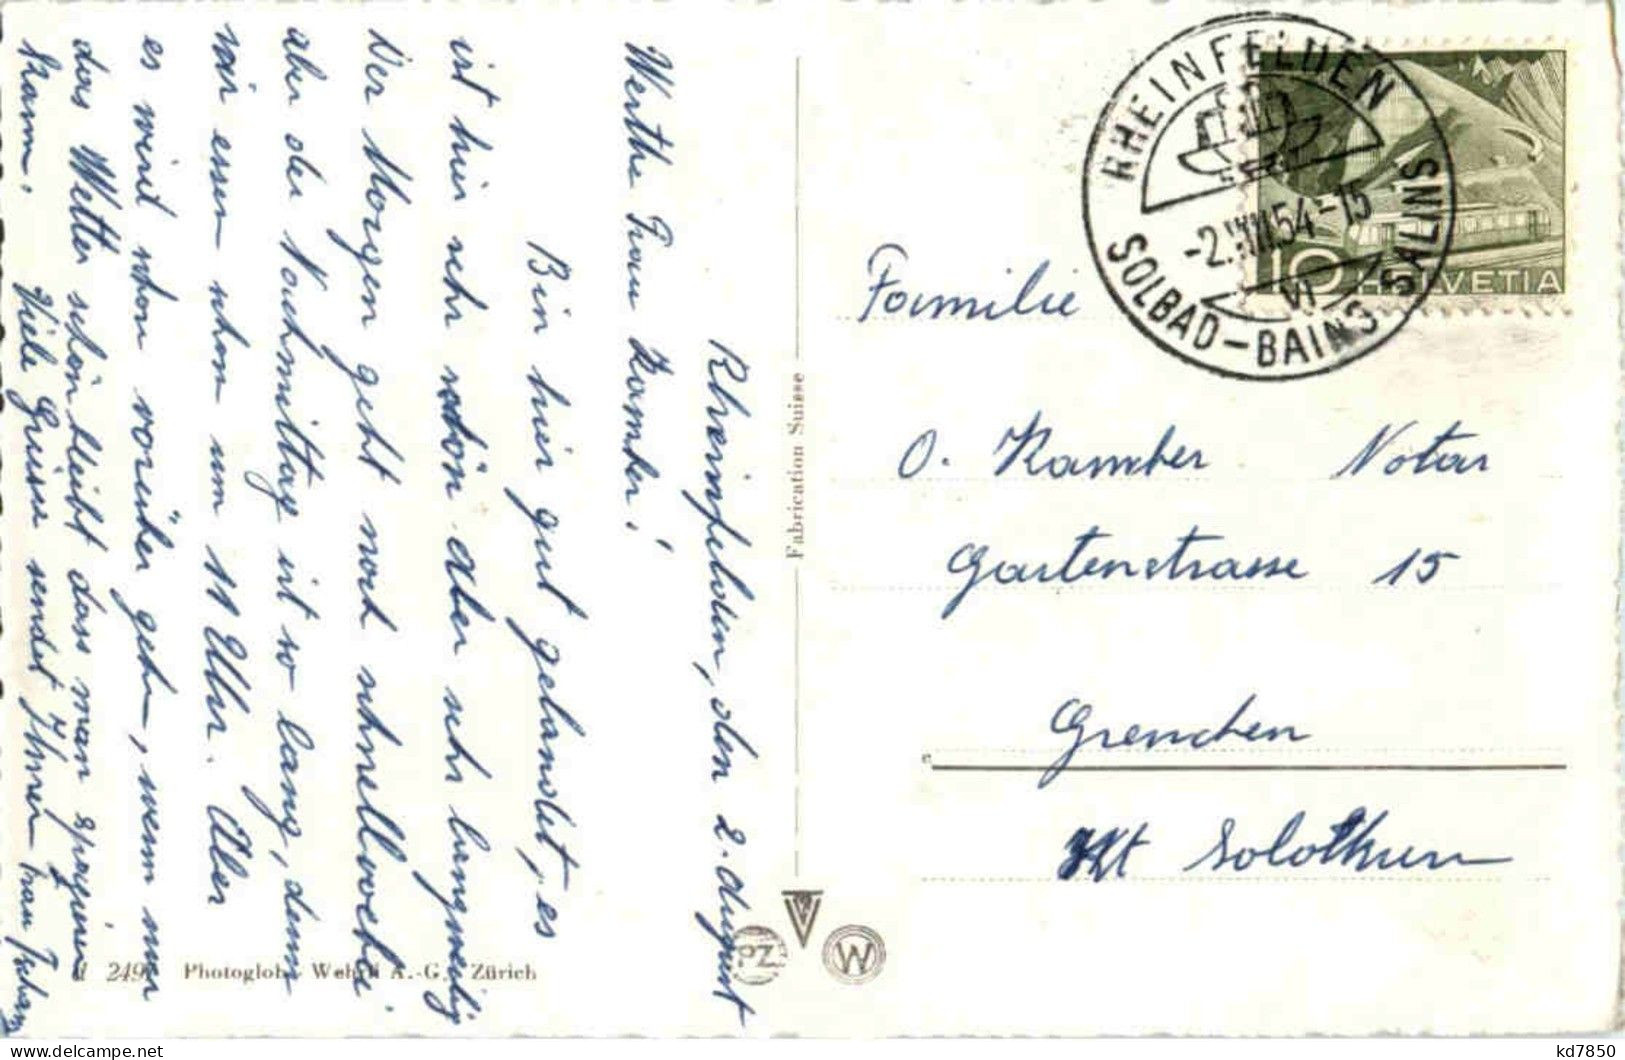 Rheinfelden, den 2. August
Werthe Frau Kamber!
Bin hier gut gelandet, es
ist hier sehr schön aber sehr langweilig
Der Morgen geht noch schnell vorbei
aber der Nachmittag ist so lang, denn
wir essen schon um 11 Uhr. Aber
es wird schon vorüber gehn, wenn nur
das Wetter schön bleibt dass man spazieren
kann. Viele Grüsse sendet Ihnen Frau
249 Photoglob-Wehrli A.-G., Zürich
Fabrication Suisse
PZ
W
RHEINFELDEN
-2.VIII.54-15
VI
SOLBAD-BAINS SALINS
10 HELVETIA
Familie
O. Kamber Notar
Gartenstrasse 15
Grenchen
Kt Solothurn
kd7850